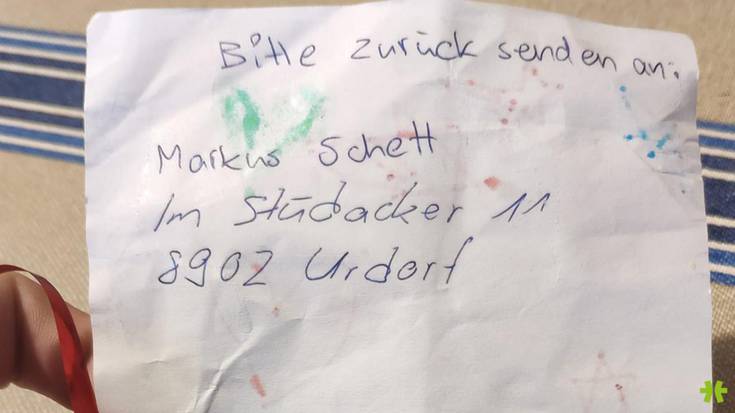 Bitte zurück senden an:
Markus Schett
Im Stüdacker 11
8902 Urdorf